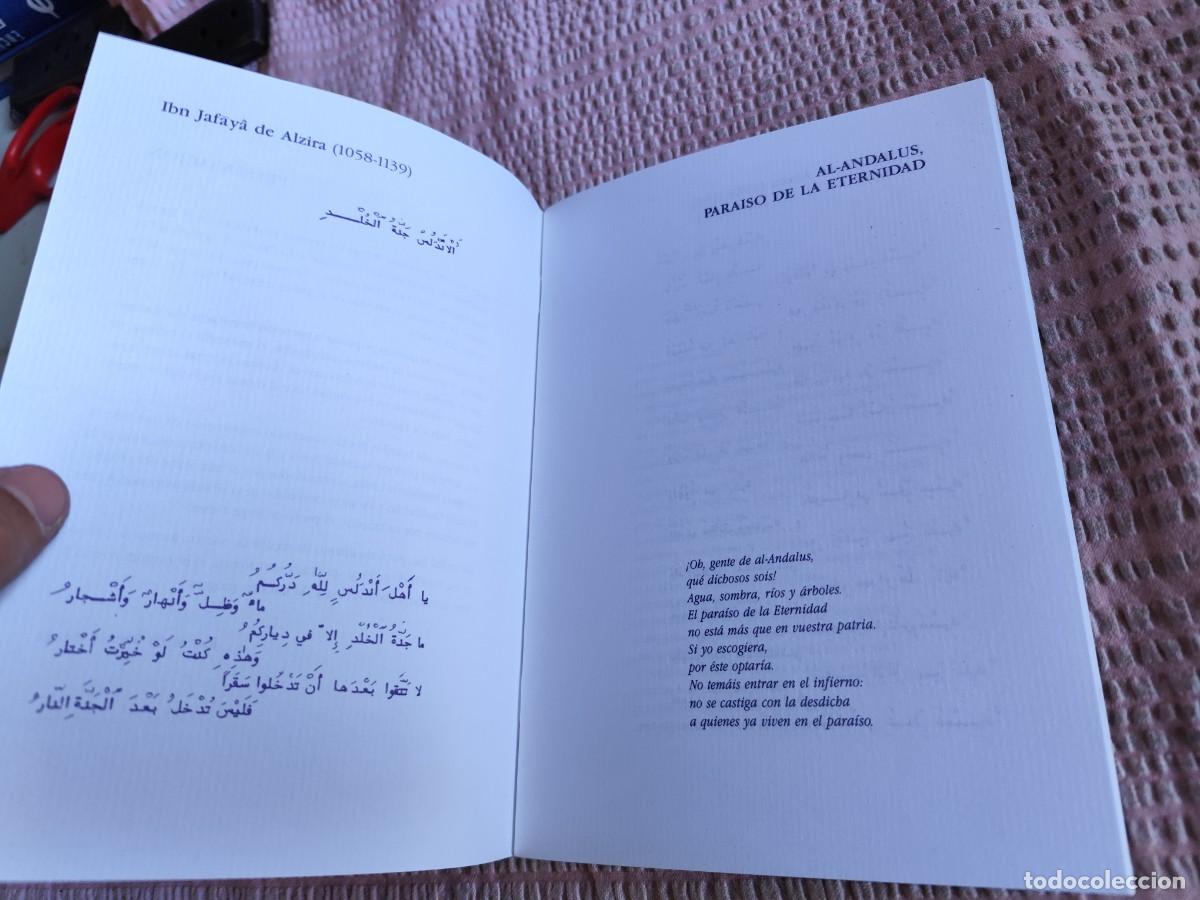 Ibn Jafāyâ de Alzira (1058-1139)
الأَنْدَلُسُ جَنَّةُ الْخُلْـــدِ
يا أَهْلَ أَنْدَلُسٍ لِلَّهِ دَرُّكُمُ
ماءٌ وَظِــلٌّ وَأَنْهارٌ وَأَشْــجارُ
ما جَنَّةُ الْخُلْدِ إِلاّ في دِيارِكِمُ
وَهٰذِهِ كُنْتُ لَوْ خُيِّرْتُ أَخْتارُ
لا تَتَّقوا بَعْدَها أَنْ تَدْخُلوا سَقَراً
فَلَيْسَ تُدْخَلُ بَعْدَ الْجَنَّةِ النّارُ
AL-ANDALUS,
PARAISO DE LA ETERNIDAD
¡Oh, gente de al-Andalus,
qué dichosos sois!
Agua, sombra, ríos y árboles.
El paraíso de la Eternidad
no está más que en vuestra patria.
Si yo escogiera,
por éste optaría.
No temáis entrar en el infierno:
no se castiga con la desdicha
a quienes ya viven en el paraíso.
todocoleccion